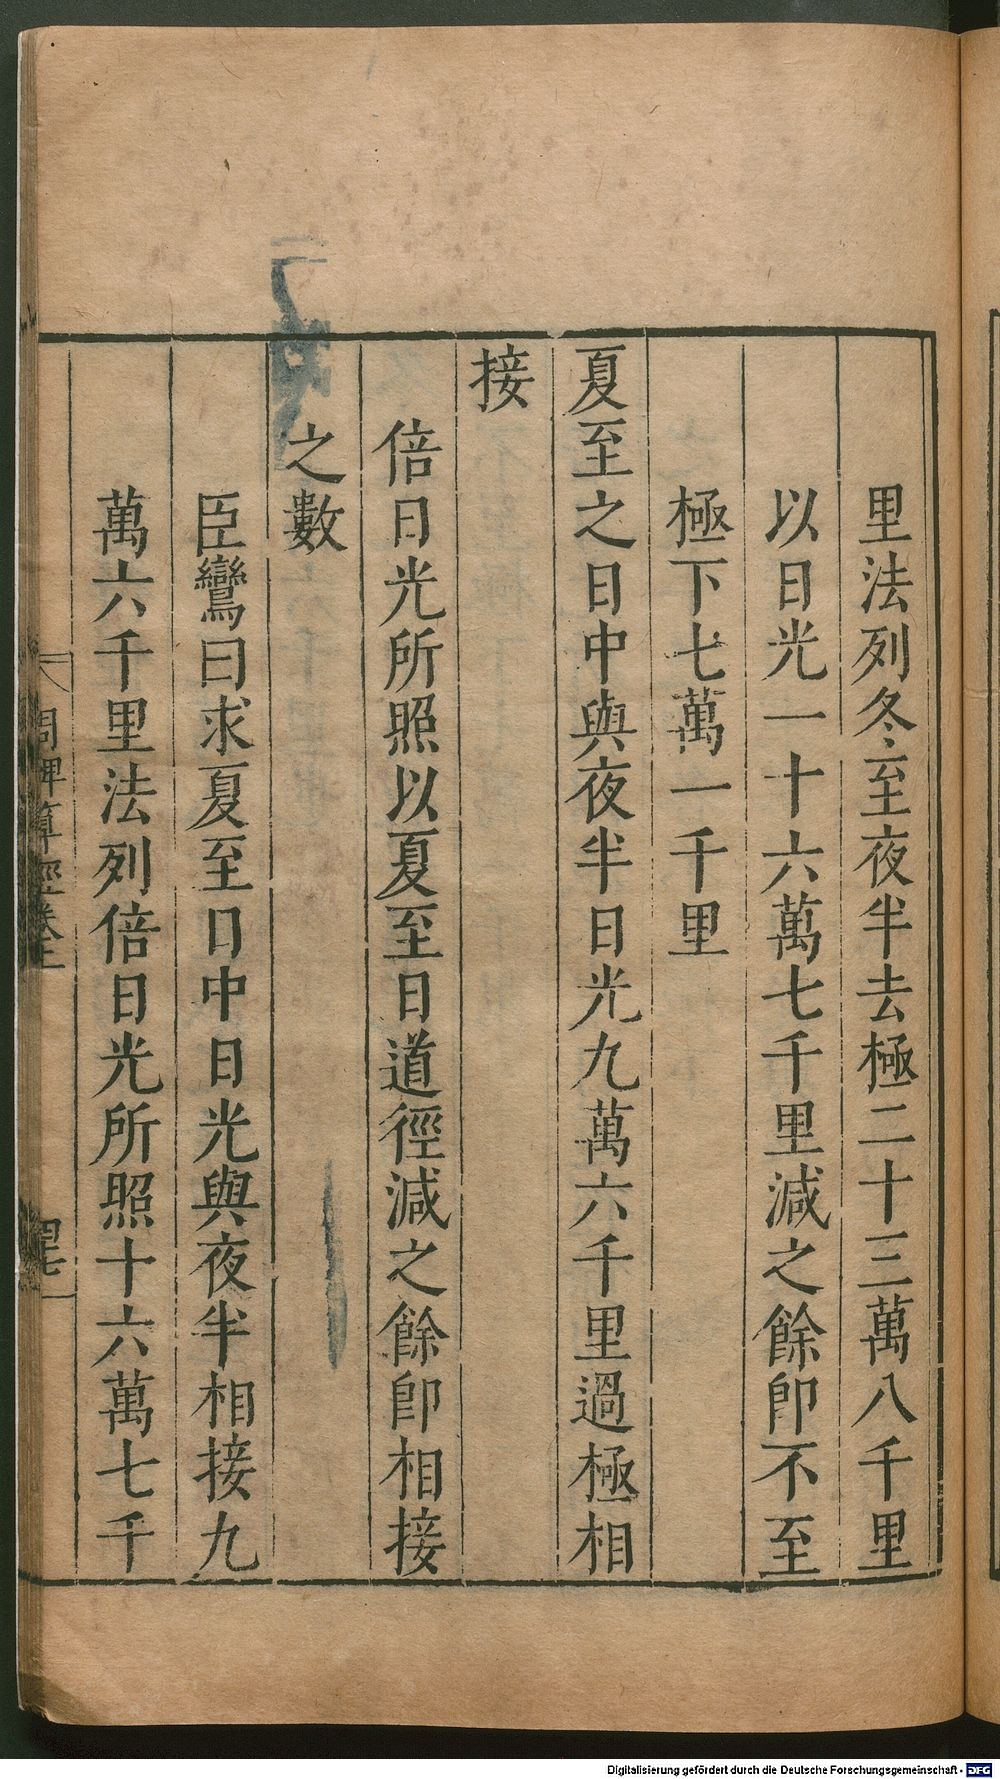 里法列冬至夜半去極二十三萬八千里
以日光一十六萬七千里減之餘卽不至
極下七萬一千里
夏至之日中與夜半日光九萬六千里過極相
接
倍日光所照以夏至日道徑減之餘卽相接
之數
臣鸞曰求夏至日中日光與夜半相接九
萬六千里法列倍日光所照十六萬七千
周髀算經卷上
四七
Digitalisierung gefördert durch die Deutsche Forschungsgemeinschaft - DFG